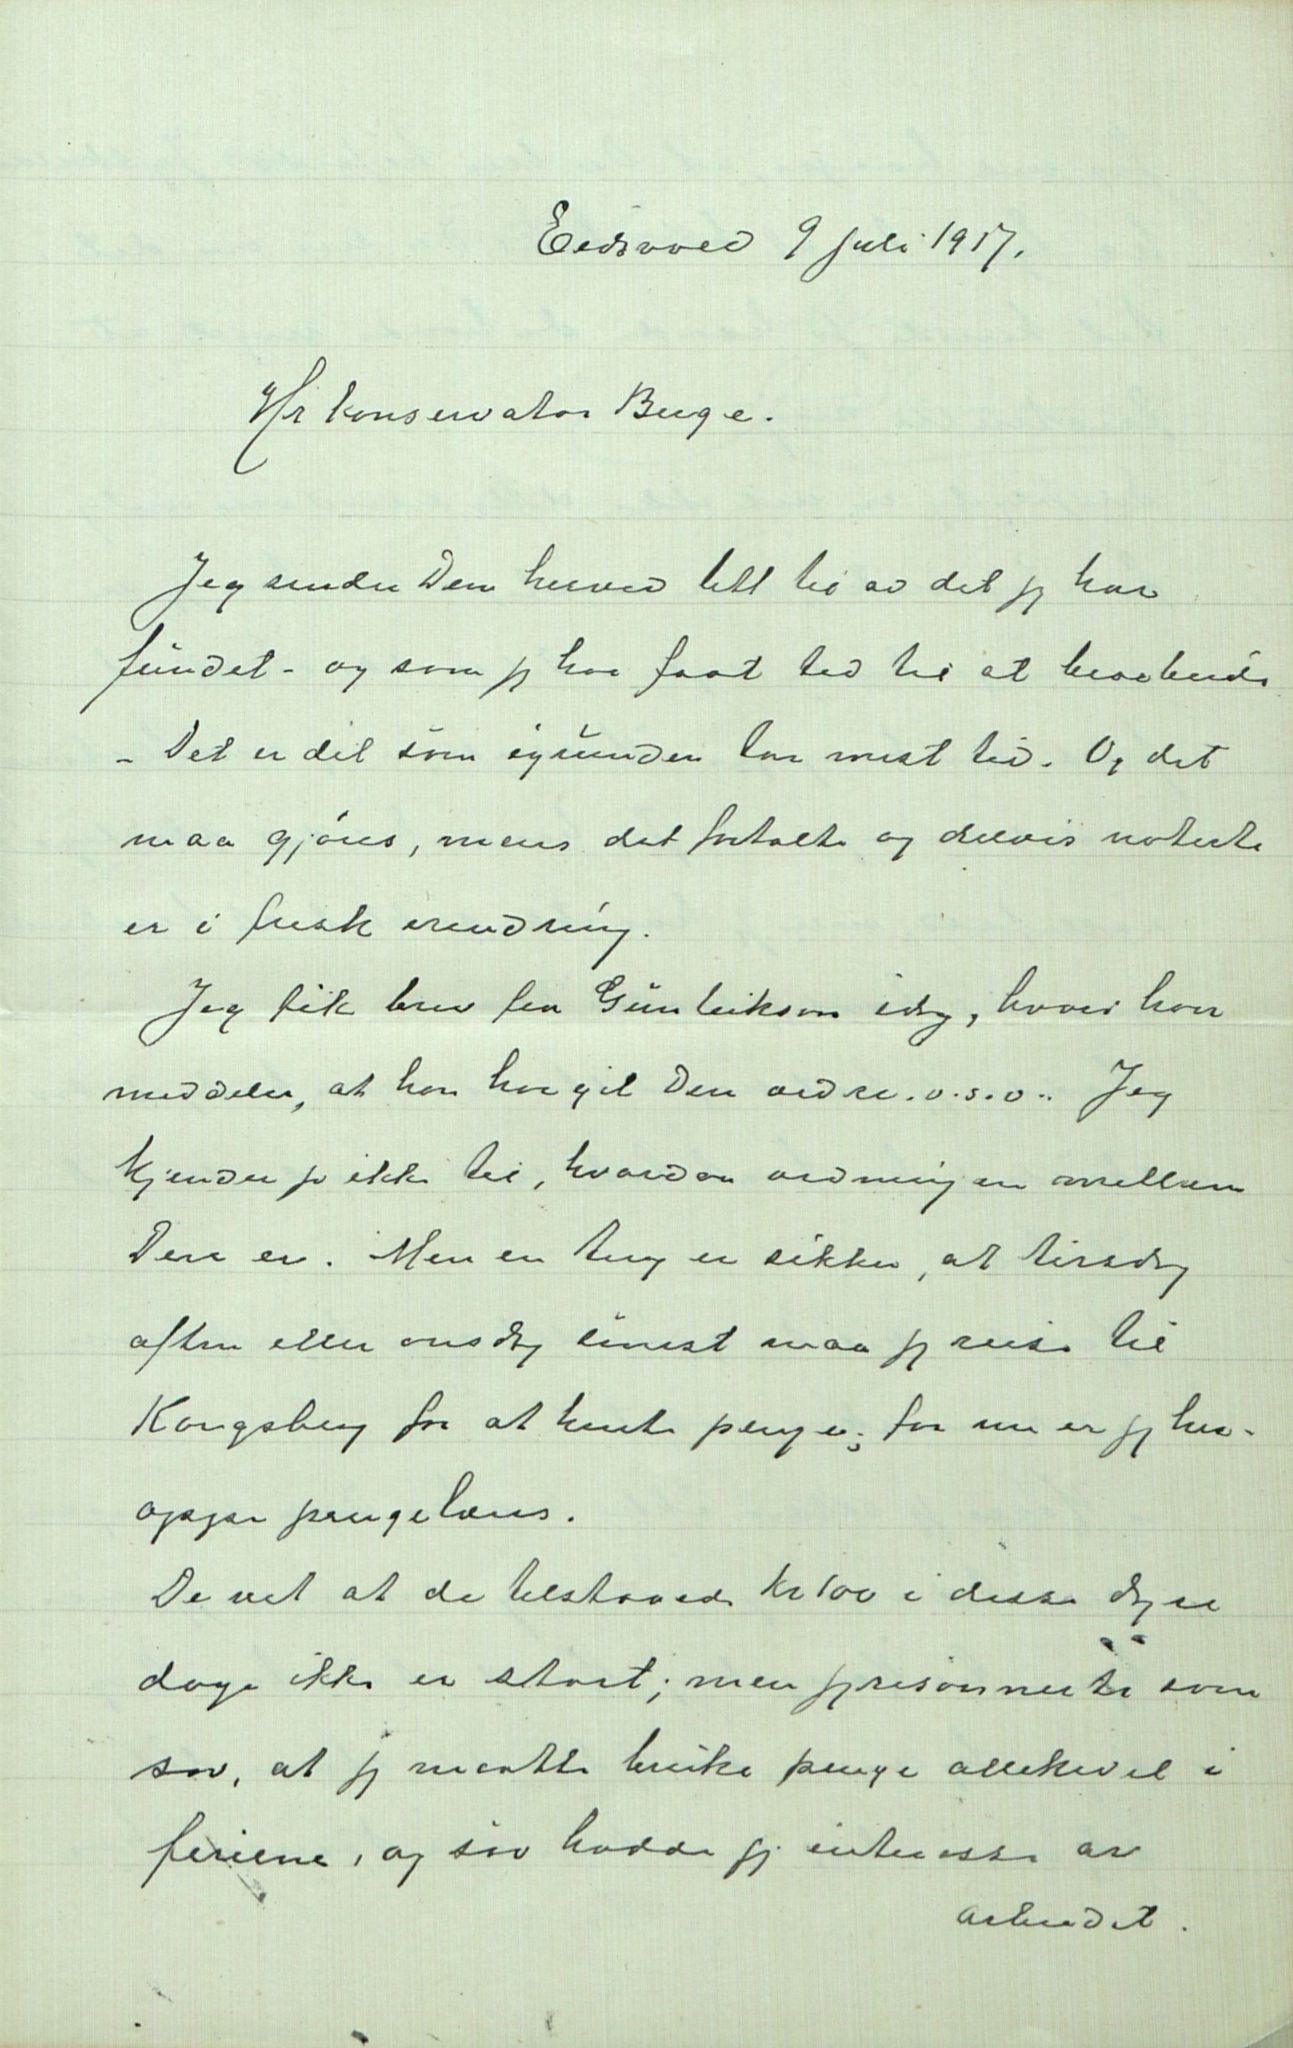 Eidsvold 9 juli 1917.
Hr konservator Buge.
Jeg sender Dem herved litt til av det jeg har
fundet - og som jeg har faat tid til at bearbeide
- Det er det som igrunden tar mest tid. Og det
maa gjøres, mens det fortalte og delvis noterte
er i frisk erindring.
Jeg fik brev fra Gunleikson idag, hvori han
meddeler, at han har git Dem ordre. o.s.v.. Jeg
kjender jo ikke til, hvordan ordningen mellem
Dere er. Men en ting er sikker, at tirsdag
aften eller onsdag senest maa jeg reise til
Kongsberg for at hente penger; for nu er jeg her-
oppe pengelæns.
De vet at de tilstaaede kr 100 i disse dyre
dage ikke er stort; men jeg resonnerte som
saa, at jeg maatte bruke penge allikevel i
feriene, og saa hadde jeg interesse av
arbeidet.